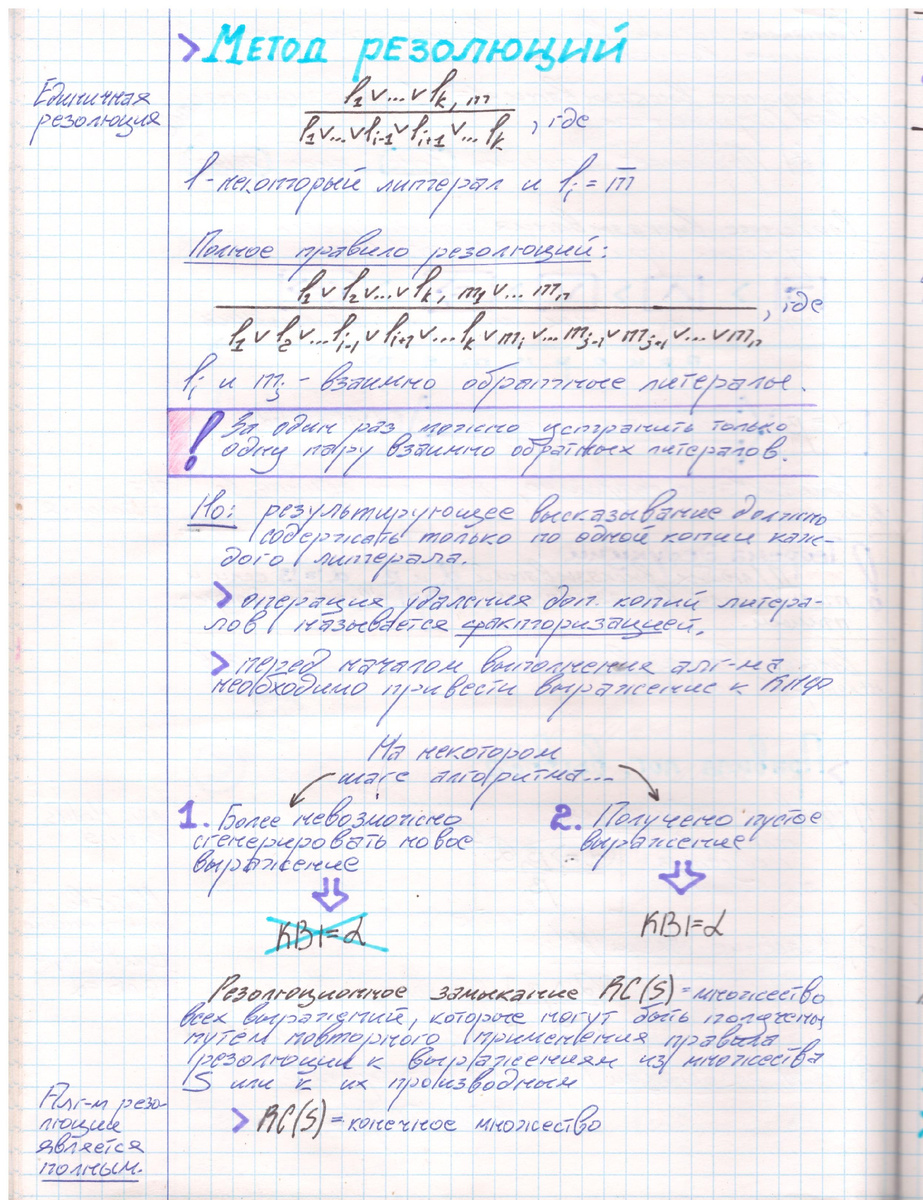 > Метод резолюций
Единичная
резолюция
l₁ ∨ ... ∨ lₖ, m
l₁ ∨ ... ∨ lᵢ₋₁ ∨ lᵢ₊₁ ∨ ... lₖ , где
l - некоторый литерал и lᵢ = m̅
Полное правило резолюций:
l₁ ∨ l₂ ∨ ... ∨ lₖ, m₁ ∨ ... mₙ
l₁ ∨ l₂ ∨ ... lᵢ₋₁ ∨ lᵢ₊₁ ∨ ... lₖ ∨ mᵢ ∨ ... mⱼ₋₁ ∨ mⱼ₊₁ ∨ ... ∨ mₙ , где
lᵢ и mⱼ - взаимно обратные литералы.
! За один раз можно устранить только
одну пару взаимно обратных литералов.
Но: результирующее высказывание должно
содержать только по одной копии каж-
дого литерала.
> операция удаления доп. копий литера-
лов называется факторизацией.
> перед началом выполнения алг-ма
необходимо привести выражение к КНФ
На некотором
шаге алгоритма...
1. Более невозможно
сгенерировать новое
выражение
2. Получено пустое
выражение
KB|=α
KB|=α
Резолюционное замыкание RC(S) = множество
всех выражений, которые могут быть получены
путем повторного применения правила
резолюции к выражениям из множества
S или к их производным
> RC(S) = конечное множество
Алг-м резо-
люции
является
полным.